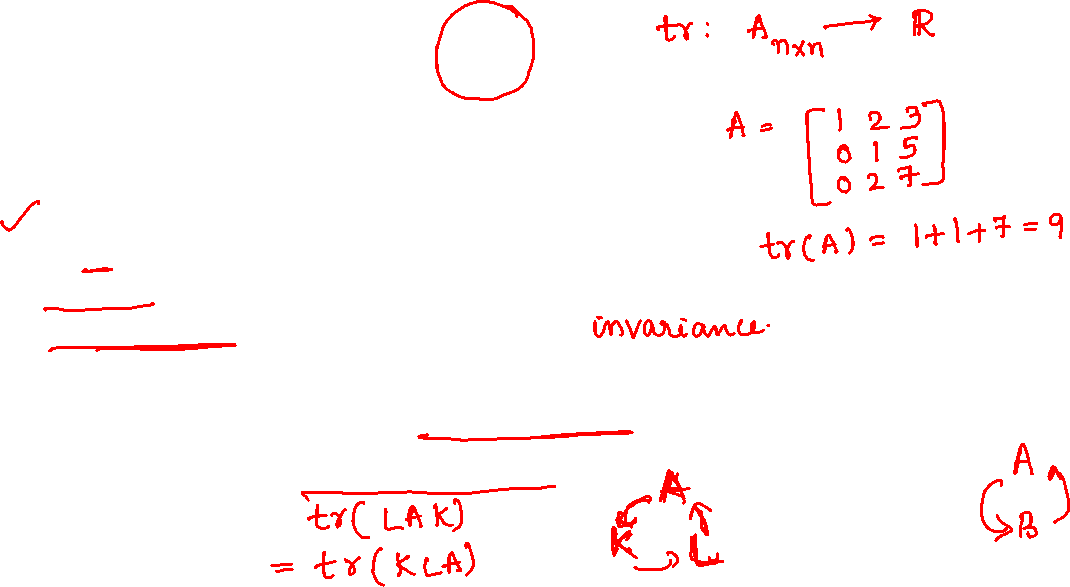 tr: Anxn → R
A = [1 2 3
0 1 5
0 2 7]
tr(A) = 1+1+7=9
invariance.
tr(LAK)
= tr(KLA)
A
K L
A
B